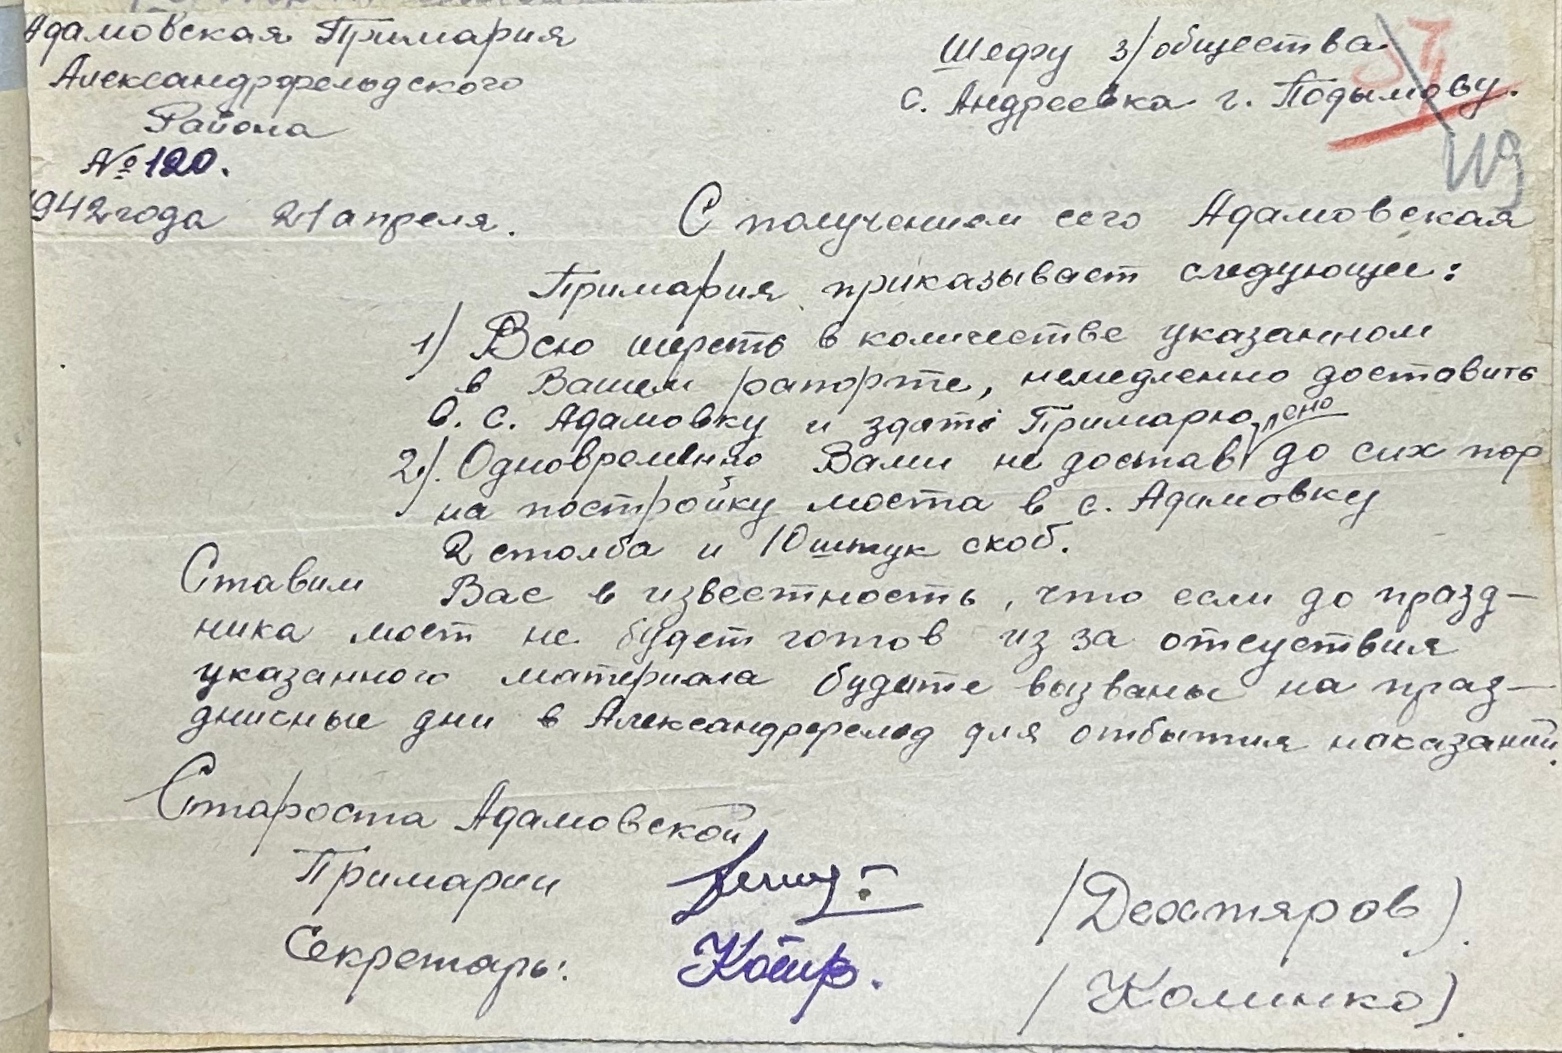 Адамовская Примария
Александрфельдского
Района
№ 120.
1942 года 21 апреля.
Шефу з/общества
с. Андреевка г. Подымову.
119
С получением сего Адамовская
Примария приказывает следующее:
1) Всю шерсть в количестве указанном
в Вашем рапорте, немедленно доставить
в с. Адамовку и здать Примарю
2). Одновременно Вами не доставлено до сих пор
на постройку моста в с. Адамовку
2 столба и 10 штук скоб.
Ставим Вас в известность, что если до празд-
ника мост не будет готов из за отсуствия
указанного материала будете вызваны на праз-
дничные дни в Александрфельд для отбытия наказаний.
Староста Адамовской
Примарии
/Дехтяров)
Секретарь:
/Колинко)